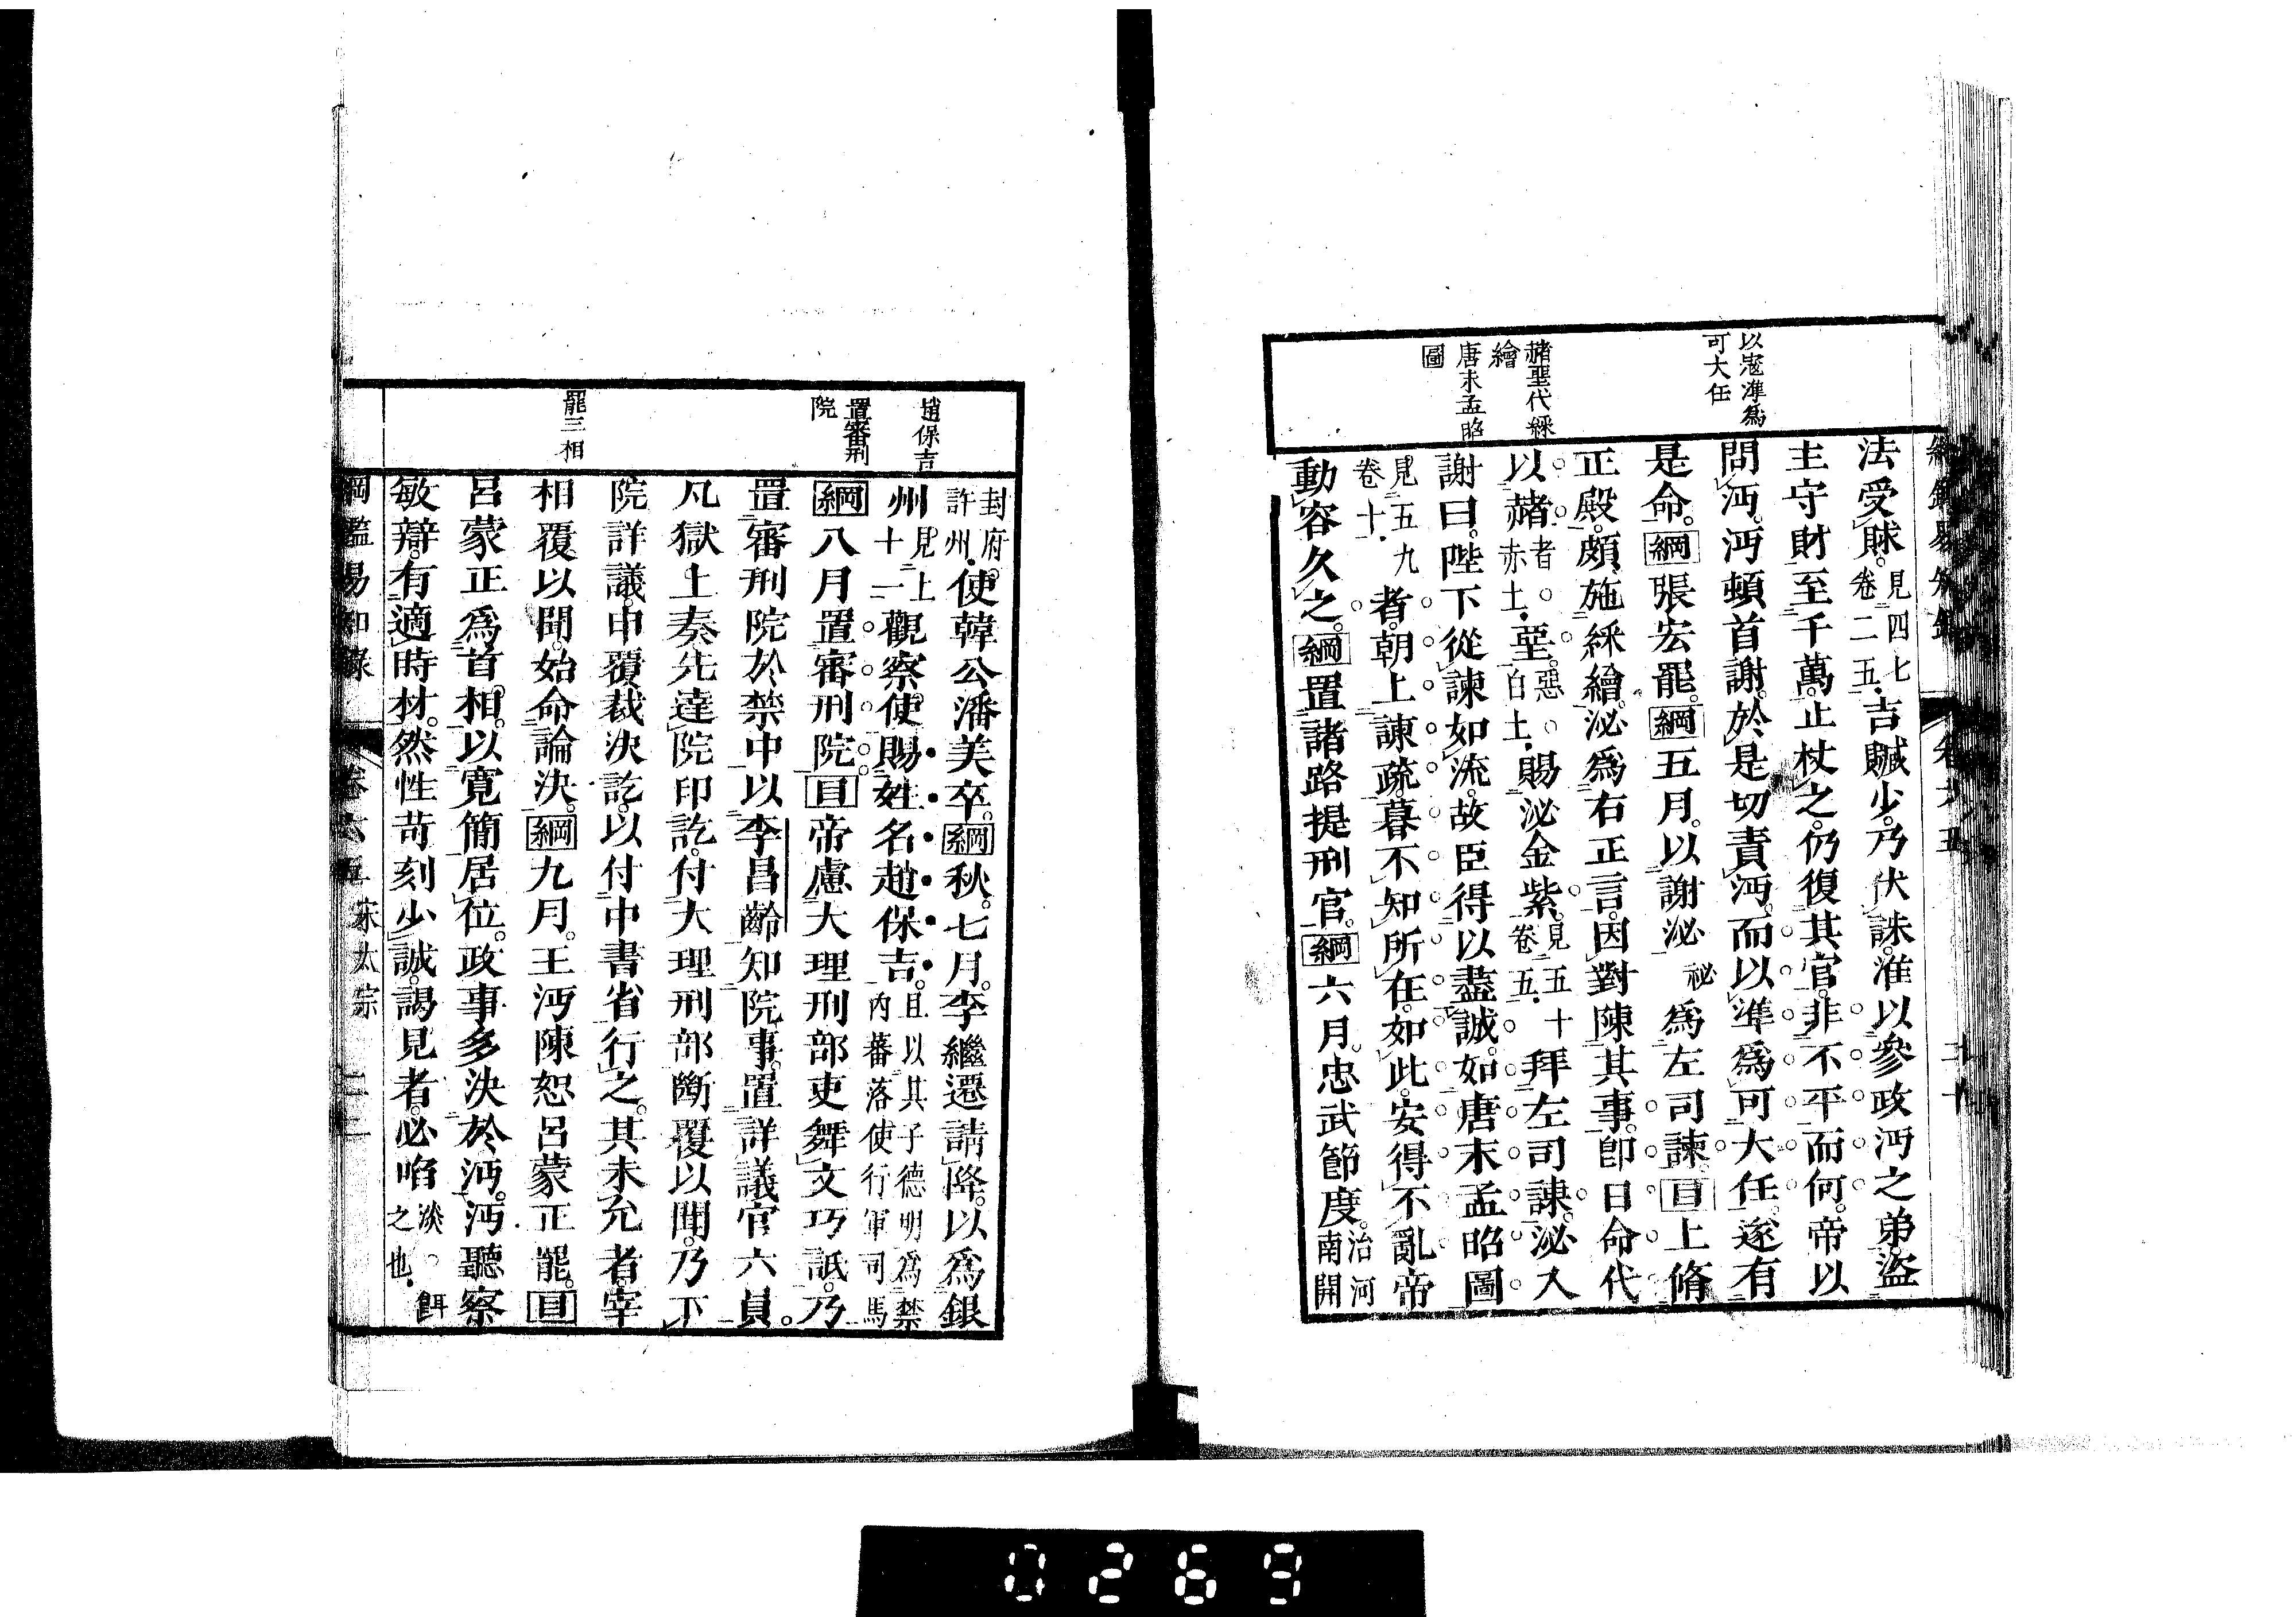 以寇準爲
可大任
赭堊代綵
繪
唐末孟昭
圖
法受賕。見四七卷二五。吉贓少。乃伏誅。淮以參政沔之弟。盜
主守財至千萬。止杖之。仍復其官。非不平而何。帝以
問沔。沔頓首謝。於是切責沔。而以準爲可大任。遂有
是命。綱張宏罷。綱五月。以謝泌祕爲左司諫。目上脩
正殿。頗施綵繪。泌爲右正言。因對陳其事。卽日命代
以赭者。赤土。堊。惡。白土。賜泌金紫。見五十卷五。拜左司諫。泌入
謝曰。陛下從諫如流。故臣得以盡誠。如唐末孟昭圖
見五九卷十。者。朝上諫疏。暮不知所在。如此。安得不亂。帝
動容久之。綱置諸路提刑官。綱六月。忠武節度。治河南開
趙保吉
置審刑
院
罷三相
封府許州。使韓公潘美卒。綱秋。七月。李繼遷請降。以爲銀
州見上十一觀察使。賜姓名趙保吉。且以其子德明爲禁內蕃落使行軍司馬
綱八月。置審刑院。目帝慮大理刑部吏舞文巧詆。乃
置審刑院於禁中。以李昌齡知院事。置詳議官六員。
凡獄上奏。先達院印訖。付大理刑部斷覆以聞。乃下
院詳議。中覆裁決訖。以付中書省行之。其未允者。宰
相覆以聞。始命論決。綱九月。王沔陳恕呂蒙正罷。目
呂蒙正爲首相。以寬簡居位。政事多決於沔。沔聽察
敏辯。有適時材。然性苛刻少誠。謁見者。必啗淡。餌之也。
綱鑑易知錄 卷六五 宋太宗 二二
0269